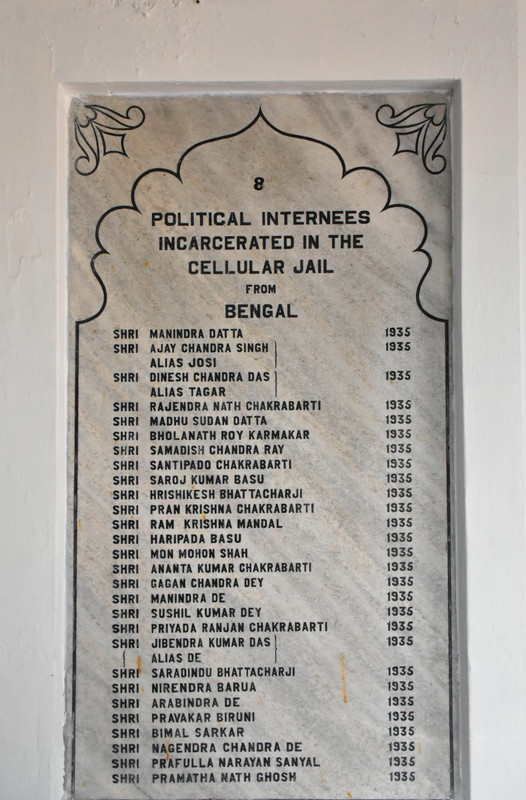 8
POLITICAL INTERNEES
INCARCERATED IN THE
CELLULAR JAIL
FROM
BENGAL
SHRI MANINDRA DATTA 1935
SHRI AJAY CHANDRA SINGH 1935
ALIAS JOSI
SHRI DINESH CHANDRA DAS 1935
ALIAS TAGAR
SHRI RAJENDRA NATH CHAKRABARTI 1935
SHRI MADHU SUDAN DATTA 1935
SHRI BHOLANATH ROY KARMAKAR 1935
SHRI SAMADISH CHANDRA RAY 1935
SHRI SANTIPADO CHAKRABARTI 1935
SHRI SAROJ KUMAR BASU 1935
SHRI HRISHIKESH BHATTACHARJI 1935
SHRI PRAN KRISHNA CHAKRABARTI 1935
SHRI RAM KRISHNA MANDAL 1935
SHRI HARIPADA BASU 1935
SHRI MON MOHON SHAH 1935
SHRI ANANTA KUMAR CHAKRABARTI 1935
SHRI GAGAN CHANDRA DEY 1935
SHRI MANINDRA DE 1935
SHRI SUSHIL KUMAR DEY 1935
SHRI PRIYADA RANJAN CHAKRABARTI 1935
SHRI JIBENDRA KUMAR DAS 1935
ALIAS DE
SHRI SARADINDU BHATTACHARJI 1935
SHRI NIRENDRA BARUA 1935
SHRI ARABINDRA DE 1935
SHRI PRAVAKAR BIRUNI 1935
SHRI BIMAL SARKAR 1935
SHRI NAGENDRA CHANDRA DE 1935
SHRI PRAFULLA NARAYAN SANYAL 1935
SHRI PRAMATHA NATH GHOSH 1935